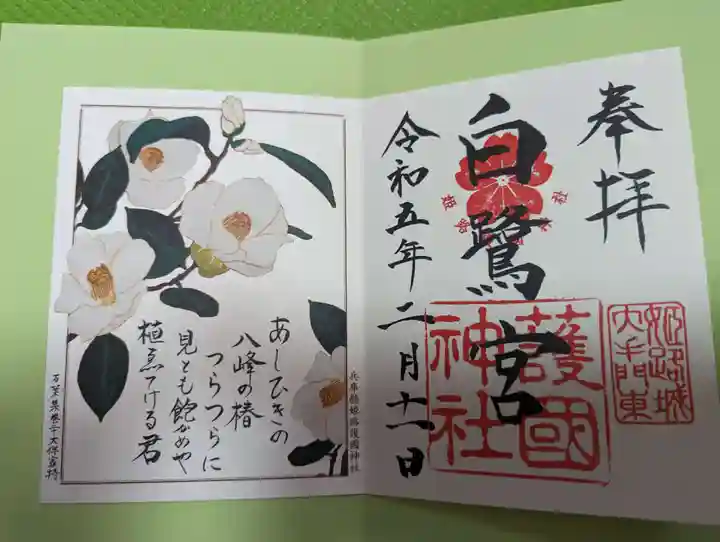 奉拝
姫路城
大手門東
白鷺宮
護國
神社
令和五年二月十一日
兵庫縣姫路護國神社
あしひきの
八峰の椿
つらつらに
見とも飽かめや
植ゑてける君
万葉集巻二十大伴家持